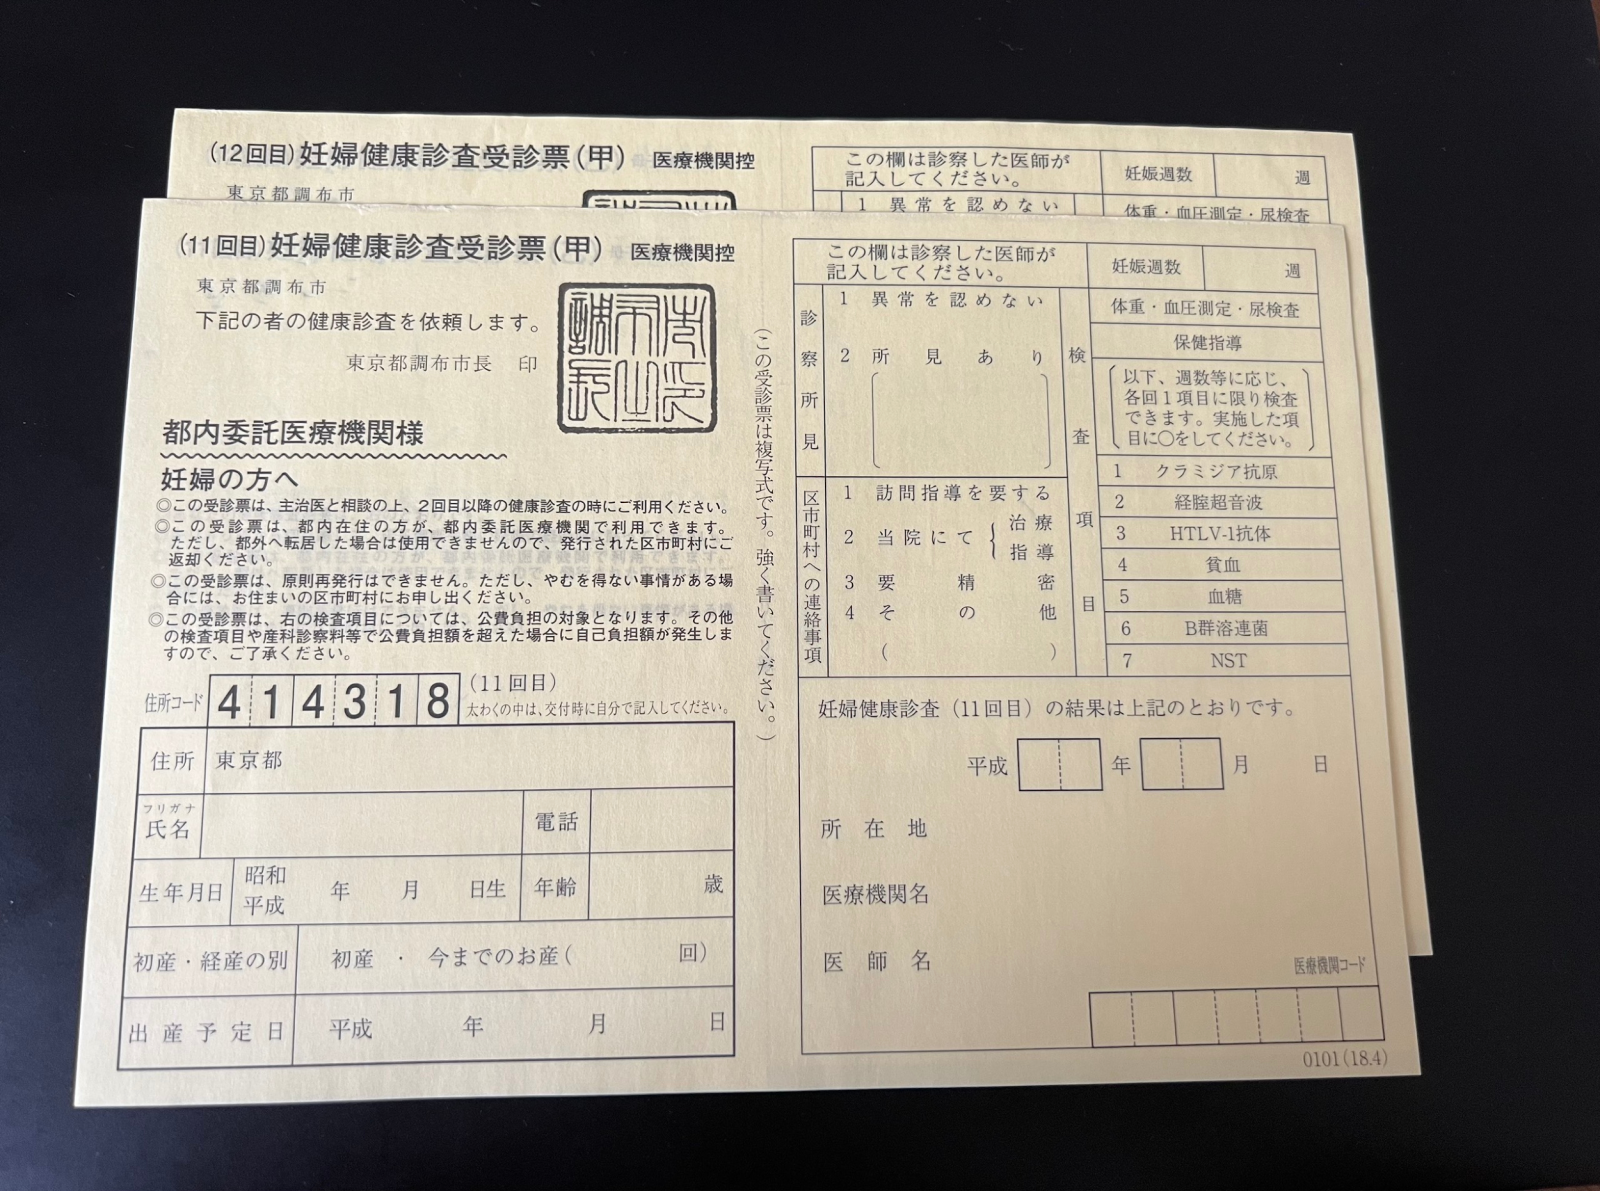 (12回目)妊婦健康診査受診票(甲) 医療機関控
東京都調布市
この欄は診察した医師が
記入してください。
妊娠週数 週
1 異常を認めない
体重・血圧測定・尿検査
(11回目)妊婦健康診査受診票(甲) 医療機関控
東京都調布市
下記の者の健康診査を依頼します。
東京都調布市長 印
都内委託医療機関様
妊婦の方へ
◎この受診票は、主治医と相談の上、2回目以降の健康診査の時にご利用ください。
◎この受診票は、都内在住の方が、都内委託医療機関で利用できます。
ただし、都外へ転居した場合は使用できませんので、発行された区市町村にご
返却ください。
◎この受診票は、原則再発行はできません。ただし、やむを得ない事情がある場
合には、お住まいの区市町村にお申し出ください。
◎この受診票は、右の検査項目については、公費負担の対象となります。その他
の検査項目や産科診察料等で公費負担額を超えた場合に自己負担額が発生しま
すので、ご了承ください。
住所コード 414318
(11回目)
太わくの中は、交付時に自分で記入してください。
住所 東京都
フリガナ
氏名
電話
生年月日
昭和
平成
年 月 日生
年齢 歳
初産・経産の別 初産 ・ 今までのお産( 回)
出産予定日 平成 年 月 日
(この受診票は複写式です。強く書いてください。)
この欄は診察した医師が
記入してください。
妊娠週数 週
診察所見
1 異常を認めない
2 所見あり
区市町村への連絡事項
1 訪問指導を要する
2 当院にて{治療
指導
3 要精密
4 その他
( )
検査項目
体重・血圧測定・尿検査
保健指導
以下、週数等に応じ、
各回1項目に限り検査
できます。実施した項
目に○をしてください。
1 クラミジア抗原
2 経腟超音波
3 HTLV-1抗体
4 貧血
5 血糖
6 B群溶連菌
7 NST
妊婦健康診査(11回目)の結果は上記のとおりです。
平成 年 月 日
所在地
医療機関名
医師名
医療機関コード
0101(18.4)